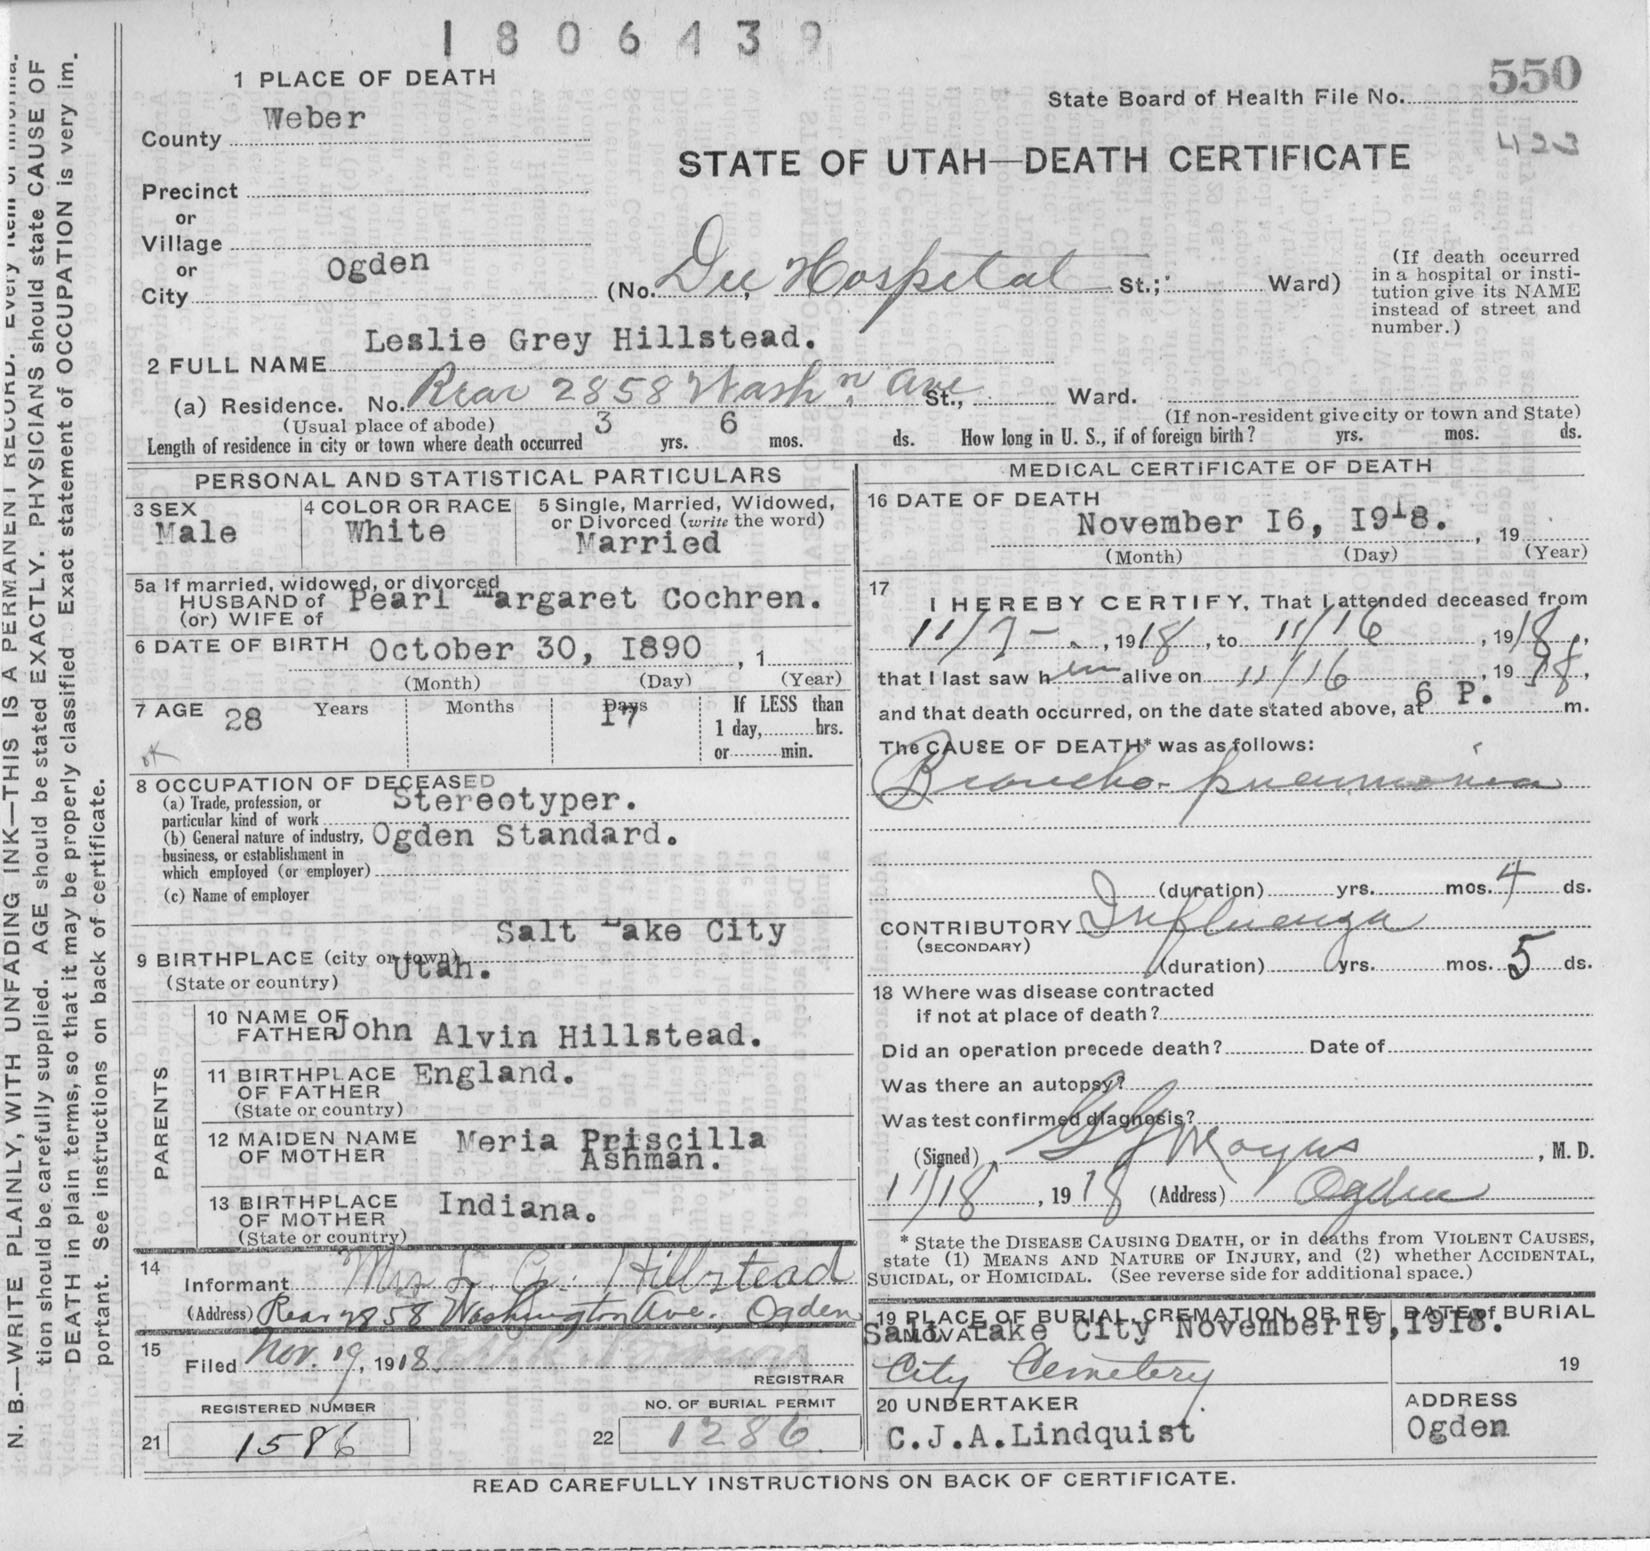 1806439
1 PLACE OF DEATH
State Board of Health File No. 550
423
County Weber
STATE OF UTAH—DEATH CERTIFICATE
Precinct
or
Village
or
City Ogden (No. Dee Hospital St.; Ward)
(If death occurred
in a hospital or insti-
tution give its NAME
instead of street and
number.)
2 FULL NAME Leslie Grey Hillstead.
(a) Residence. No. Rear 2858 Wash'n. Ave St., Ward.
(Usual place of abode) (If non-resident give city or town and State)
Length of residence in city or town where death occurred 3 yrs. 6 mos. ds. How long in U. S., if of foreign birth? yrs. mos. ds.
PERSONAL AND STATISTICAL PARTICULARS
3 SEX
Male
4 COLOR OR RACE
White
5 Single, Married, Widowed,
or Divorced (write the word)
Married
5a If married, widowed, or divorced
HUSBAND of Pearl Margaret Cochren.
(or) WIFE of
6 DATE OF BIRTH October 30, 1890 , 1
(Month) (Day) (Year)
7 AGE 28 Years Months 17 Days If LESS than
1 day, hrs.
or min.
ok
8 OCCUPATION OF DECEASED
(a) Trade, profession, or
particular kind of work Stereotyper.
(b) General nature of industry, Ogden Standard.
business, or establishment in
which employed (or employer)
(c) Name of employer
Salt Lake City
9 BIRTHPLACE (city or town) Utah.
(State or country)
PARENTS
10 NAME OF
FATHER John Alvin Hillstead.
11 BIRTHPLACE England.
OF FATHER
(State or country)
12 MAIDEN NAME Meria Priscilla
OF MOTHER Ashman.
13 BIRTHPLACE Indiana.
OF MOTHER
(State or country)
14
Informant Mrs L. G. Hillstead
(Address) Rear 2858 Washington Ave., Ogden
15
Filed Nov. 19, 1918
REGISTRAR
REGISTERED NUMBER
21 1586
NO. OF BURIAL PERMIT
22 1286
MEDICAL CERTIFICATE OF DEATH
16 DATE OF DEATH
November 16, 1918. , 19
(Month) (Day) (Year)
17
I HEREBY CERTIFY, That I attended deceased from
11/7 , 1918, to 11/16 , 1918,
that I last saw him alive on 11/16 , 1918,
and that death occurred, on the date stated above, at 6 P. m.
The CAUSE OF DEATH* was as follows:
Broncho-pneumonia
(duration) yrs. mos. 4 ds.
CONTRIBUTORY Influenza
(SECONDARY)
(duration) yrs. mos. 5 ds.
18 Where was disease contracted
if not at place of death?
Did an operation precede death? Date of
Was there an autopsy?
Was test confirmed diagnosis?
(Signed) , M. D.
11/18 , 1918 (Address) Ogden
* State the DISEASE CAUSING DEATH, or in deaths from VIOLENT CAUSES,
state (1) MEANS AND NATURE OF INJURY, and (2) whether ACCIDENTAL,
SUICIDAL, or HOMICIDAL. (See reverse side for additional space.)
19 PLACE OF BURIAL, CREMATION, OR RE-
MOVAL
DATE of BURIAL
Salt Lake City November 19, 1918.
City Cemetery
19
20 UNDERTAKER
C.J.A.Lindquist
ADDRESS
Ogden
READ CAREFULLY INSTRUCTIONS ON BACK OF CERTIFICATE.
N. B.—WRITE PLAINLY, WITH UNFADING INK—THIS IS A PERMANENT RECORD. Every item of informa-
tion should be carefully supplied. AGE should be stated EXACTLY. PHYSICIANS should state CAUSE OF
DEATH in plain terms, so that it may be properly classified. Exact statement of OCCUPATION is very im-
portant. See instructions on back of certificate.